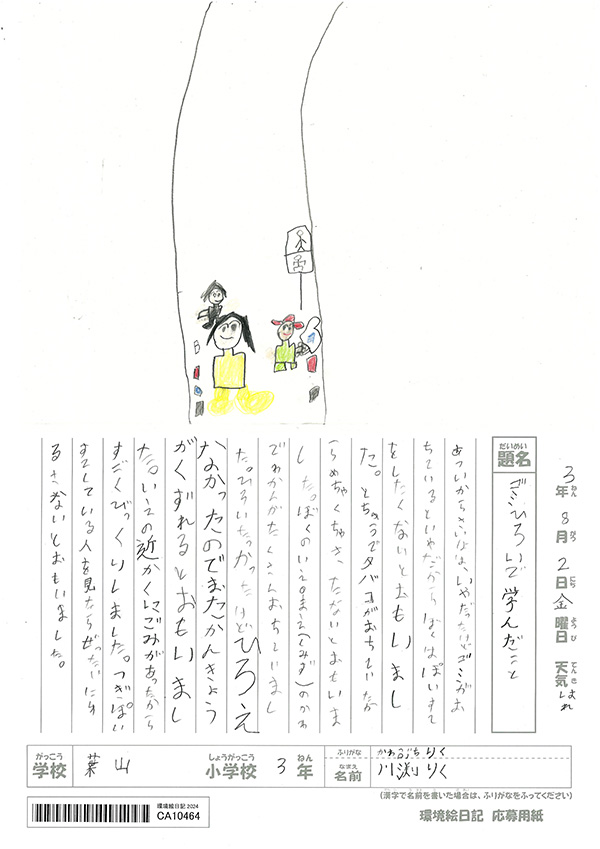 3年 8月 2日 金曜日 天気 はれ
ねん がつ にち ようび てんき
だいめい
題名
ゴミひろいで学んだこと
あついからさいしょは、いやだったけどゴミがお
ちているといやだからぼくはぽいすて
をしたくないとおもいまし
た。とちゅうでタバコがおちていたか
らめちゃくちゃきたないとおもいま
した。ぼくのいえのまえ(みぞ)のかわ
でわかんがたくさんおちていまし
た。ひろいたかったけどひろえ
なかったのでまたかんきょう
がくずれるとおもいまし
た。いえの近かくにごみがあったから
すごくびっくりしました。つぎぽい
すてしている人を見たらぜったいにゆ
るさないとおもいました。
がっこう
学校
葉山
しょうがっこう
小学校
3
ねん
年
ふりがな
かわぶちりく
なまえ
名前
川渕りく
(漢字で名前を書いた場合は、ふりがなをふってください)
環境絵日記 2024
CA10464
環境絵日記 応募用紙